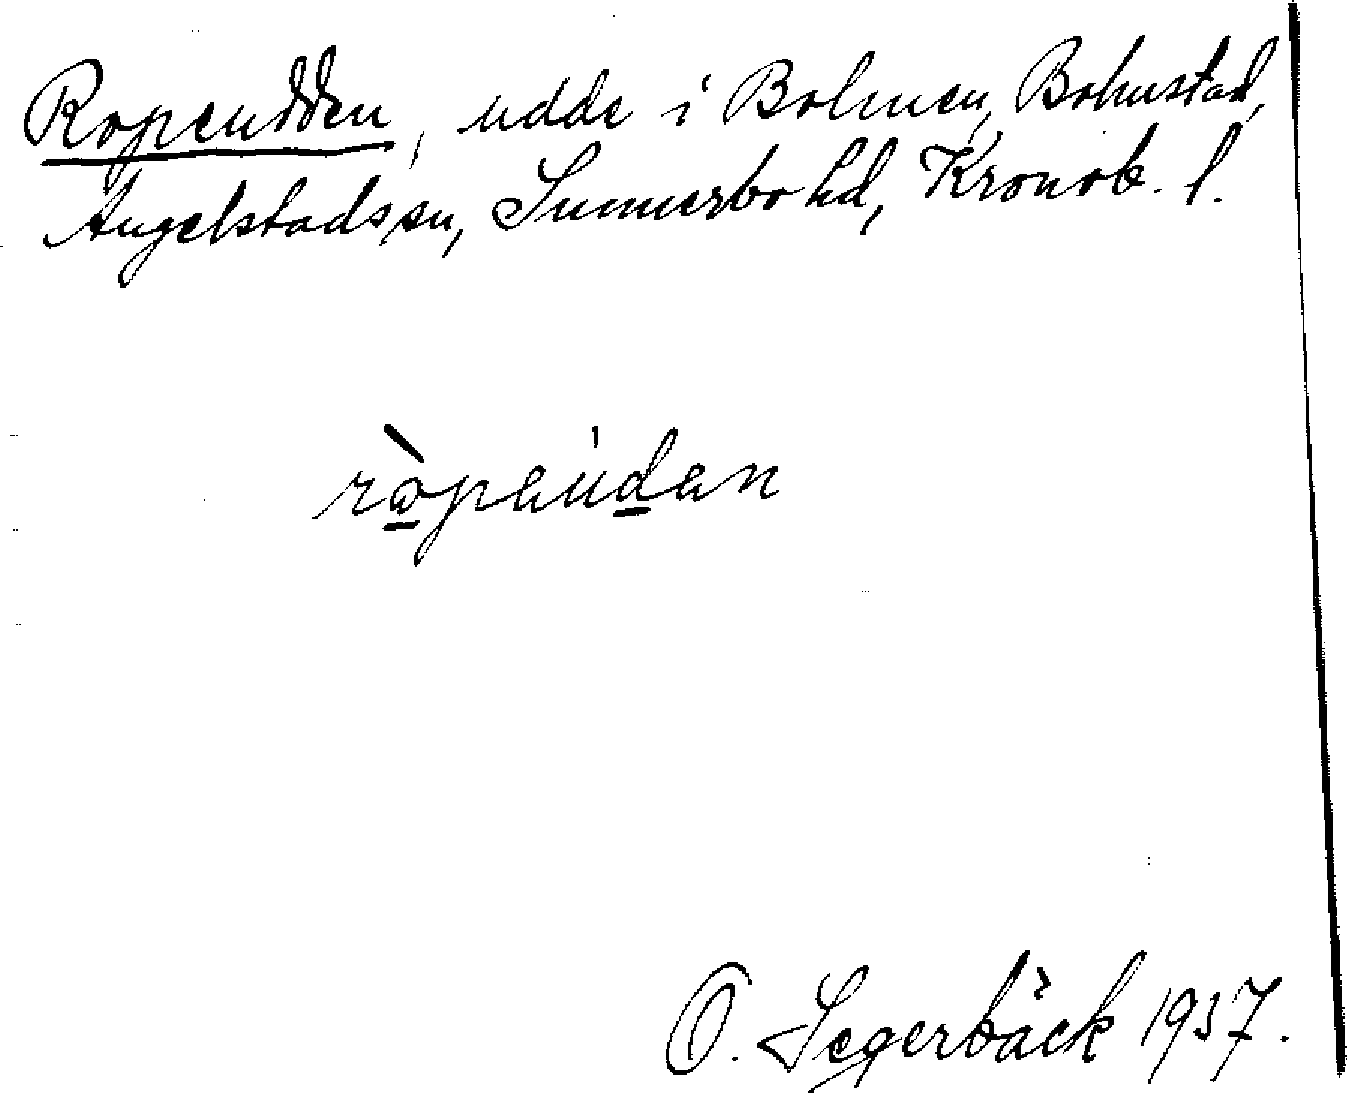 Ropeudden, udde i Bolmen, Bohustad,
Angelstads sn, Sunnerbo hd, Kronob. l.
ròpeúden
O. Segerbäck 1937.